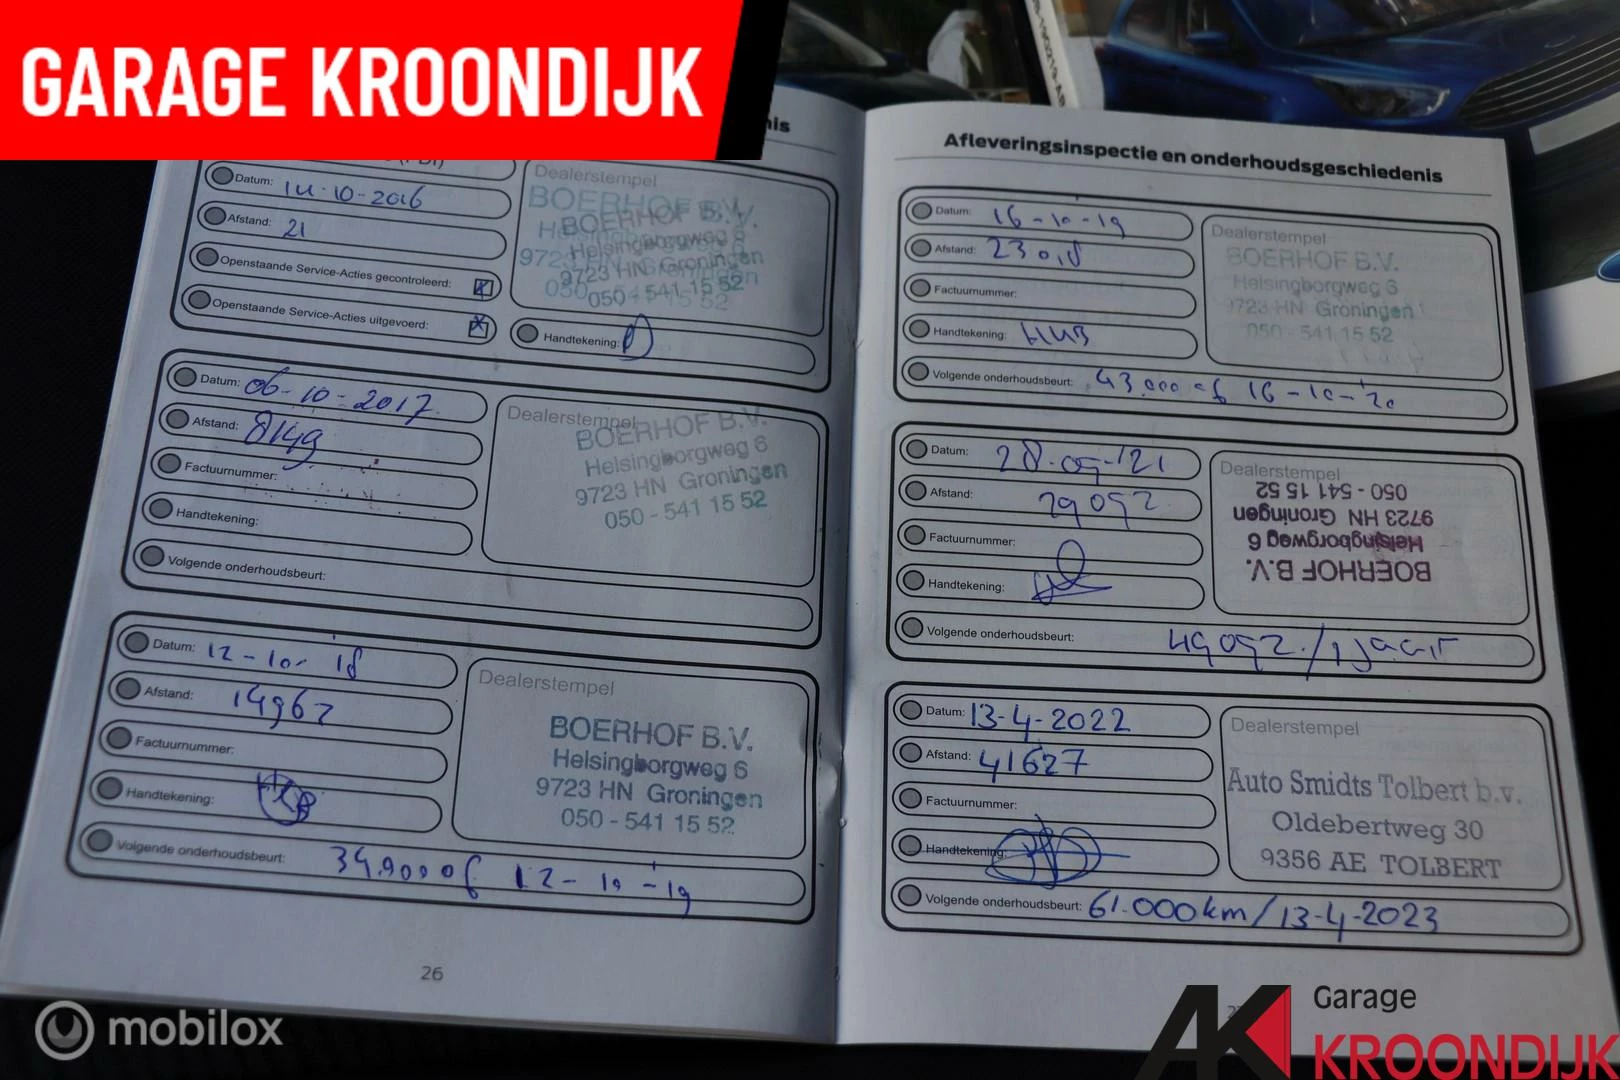 GARAGE KROONDIJK
Datum: 14-10-2016
Afstand: 21
Openstaande Service-Acties gecontroleerd:
Openstaande Service-Acties uitgevoerd:
Dealerstempel
BOERHOF B.V.
Helsingborgweg 6
9723 HN Groningen
050 - 541 15 52
Handtekening:
Datum: 06-10-2017
Afstand: 8149
Factuurnummer:
Handtekening:
Volgende onderhoudsbeurt:
Dealerstempel
BOERHOF B.V.
Helsingborgweg 6
9723 HN Groningen
050 - 541 15 52
Datum: 12-10-'18
Afstand: 14962
Factuurnummer:
Handtekening:
Volgende onderhoudsbeurt: 34.900 of 12-10-'19
Dealerstempel
BOERHOF B.V.
Helsingborgweg 6
9723 HN Groningen
050 - 541 15 52
26
Afleveringsinspectie en onderhoudsgeschiedenis
Datum: 16-10-'19
Afstand:
Factuurnummer:
Handtekening:
Volgende onderhoudsbeurt: 43.000 of 16-10-'20
Dealerstempel
BOERHOF B.V.
Helsingborgweg 6
9723 HN Groningen
050 - 541 15 52
Datum: 28-09-'21
Afstand: 29092
Factuurnummer:
Handtekening:
Volgende onderhoudsbeurt: 49092 / 1 jaar
Dealerstempel
BOERHOF B.V.
Helsingborgweg 6
9723 HN Groningen
050 - 541 15 52
Datum: 13-4-2022
Afstand: 41627
Factuurnummer:
Handtekening:
Volgende onderhoudsbeurt: 61.000km/13-4-2023
Dealerstempel
Auto Smidts Tolbert b.v.
Oldebertweg 30
9356 AE TOLBERT
mobilox
AK Garage
KROONDIJK